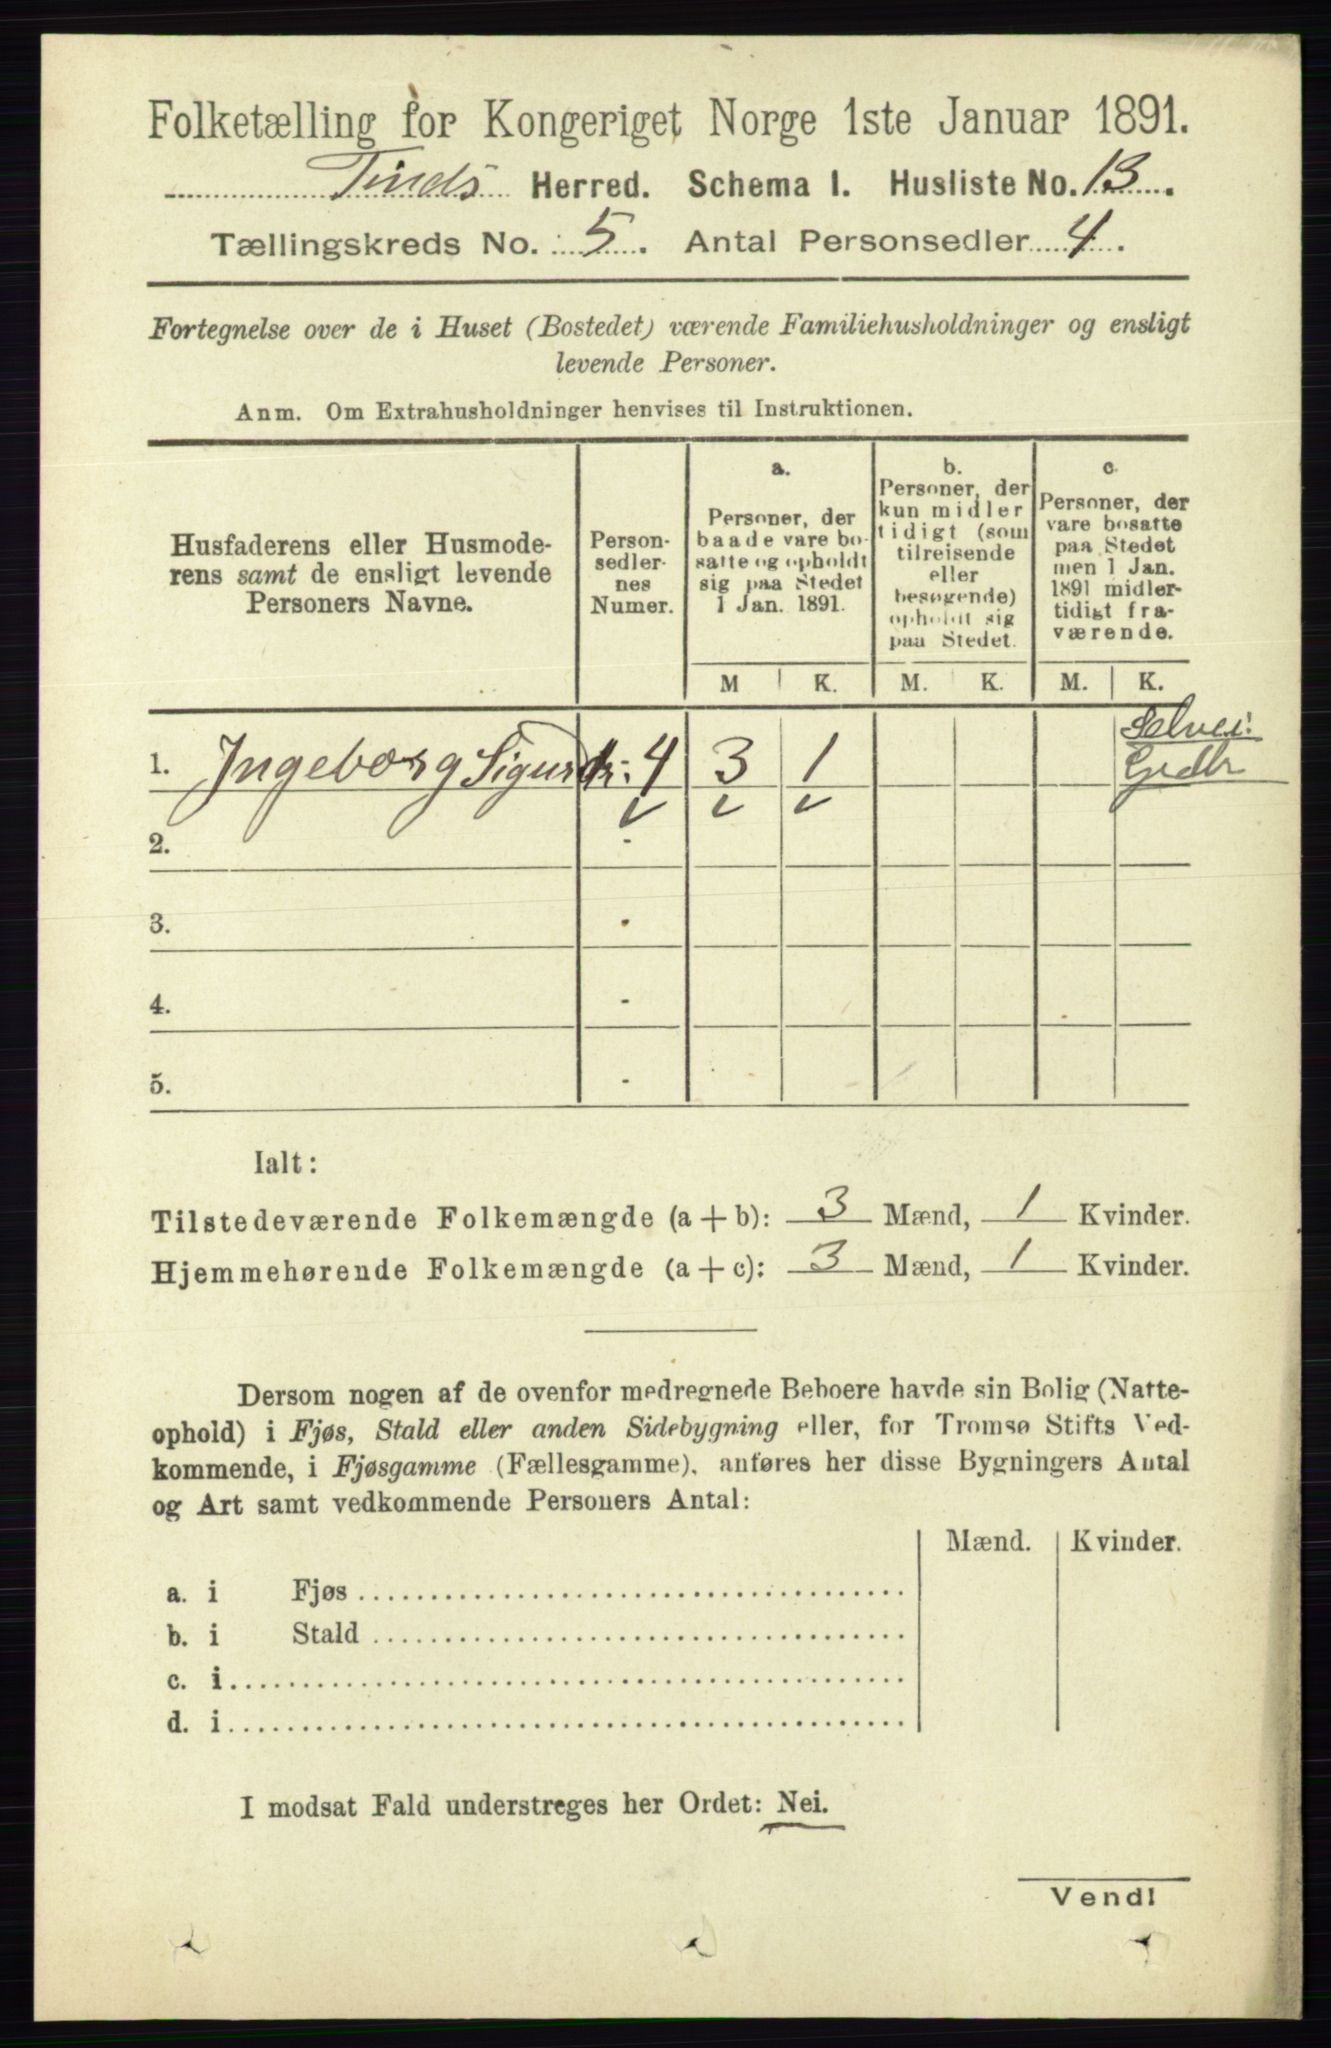 Folketælling for Kongeriget Norge 1ste Januar 1891.
Tinds Herred. Schema 1. Husliste No. 13.
Tællingskreds No. 5. Antal Personsedler 4.
Fortegnelse over de i Huset (Bostedet) værende Familiehusholdninger og ensligt
levende Personer.
Anm. Om Extrahusholdninger henvises til Instruktionen.
Husfaderens eller Husmode-
rens samt de ensligt levende
Personers Navne.
Person-
sedler-
nes
Numer.
a.
Personer, der
baade vare bo-
satte og opholdt
sig paa Stedet
1 Jan. 1891.
b.
Personer, der
kun midler
tidigt (som
tilreisende
eller
besøgende)
opholdt sig
paa Stedet.
c.
Personer, der
vare bosatte
paa Stedet
men 1 Jan.
1891 midler-
tidigt fra-
værende.
M K. M. K. M. K.
1. Ingeborg Sigurdr: 4 3 1
Selvei:
Grdbr
2. -
3. -
4. -
5. -
Ialt:
Tilstedeværende Folkemængde (a + b): 3 Mænd, 1 Kvinder.
Hjemmehørende Folkemængde (a + c): 3 Mænd, 1 Kvinder.
Dersom nogen af de ovenfor medregnede Beboere havde sin Bolig (Natte-
ophold) i Fjøs, Stald eller anden Sidebygning eller, for Tromsø Stifts Ved-
kommende, i Fjøsgamme (Fællesgamme), anføres her disse Bygningers Antal
og Art samt vedkommende Personers Antal:
Mænd. Kvinder.
a. i Fjøs
b. i Stald
c. i
d. i
I modsat Fald understreges her Ordet: Nei.
Vend!